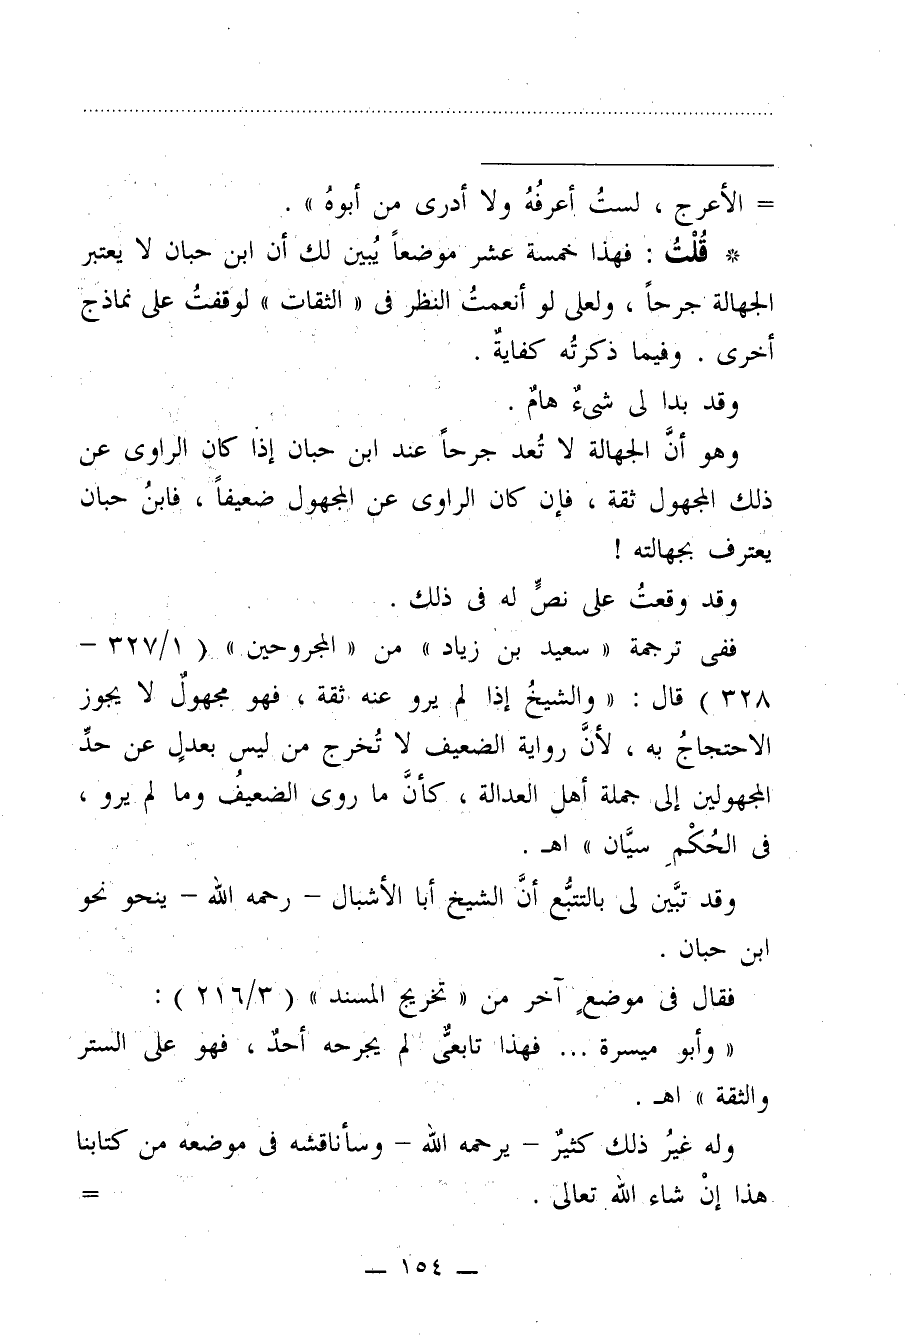 = الأعرج ، لستُ أعرفُهُ ولا أدرى من أبوهُ » .
* قُلْتُ : فهذا خمسة عشر موضعاً يُبين لك أن ابن حبان لا يعتبر
الجهالة جرحاً ، ولعلى لو أنعمتُ النظر فى « الثقات » لوقفتُ على نماذج
أخرى . وفيما ذكرتُه كفايةٌ .
وقد بدا لى شىءٌ هامٌ .
وهو أنَّ الجهالة لا تُعد جرحاً عند ابن حبان إذا كان الراوى عن
ذلك المجهول ثقة ، فإن كان الراوى عن المجهول ضعيفاً ، فابنُ حبان
يعترف بجهالته !
وقد وقعتُ على نصٍّ له فى ذلك .
ففى ترجمة « سعيد بن زياد » من « المجروحين » ( ٣٢٧/١ –
٣٢٨ ) قال : « والشيخُ إذا لم يرو عنه ثقة ، فهو مجهولٌ لا يجوز
الاحتجاجُ به ، لأنَّ رواية الضعيف لا تُخرج من ليس بعدلٍ عن حدِّ
المجهولين إلى جملة أهل العدالة ، كأنَّ ما روى الضعيفُ وما لم يرو ،
فى الحُكْمِ سيَّان » اهـ .
وقد تبَّين لى بالتتبُّع أنَّ الشيخ أبا الأشبال – رحمه الله – ينحو نحو
ابن حبان .
فقال فى موضعٍ آخر من « تخريج المسند » ( ٢١٦/٣ ) :
« وأبو ميسرة ... فهذا تابعىٌّ لم يجرحه أحدٌ ، فهو على الستر
والثقة » اهـ .
وله غيرُ ذلك كثيرٌ – يرحمه الله – وسأناقشه فى موضعه من كتابنا
هذا إنْ شاء الله تعالى . =
— ١٥٤ —